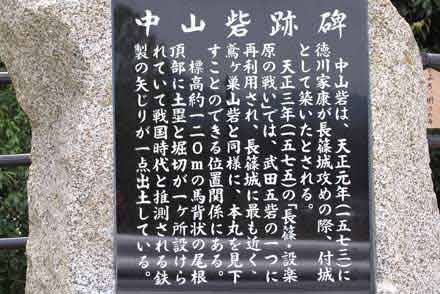 中山砦跡碑
中山砦は、天正元年(一五七三)に
徳川家康が長篠城攻めの際、付城
として築いたとされる。
天正三年(一五七五)の「長篠・設楽
原の戦い」では、武田五砦の一つに
再利用され、長篠城に最も近く、
鳶ヶ巣山砦と同様に、本丸を見下
すことのできる位置関係にある。
標高約一二〇mの馬背状の尾根
頂部に土塁と堀切が一ヶ所設けら
れていて戦国時代と推測される鉄
製の矢じりが一点出土している。